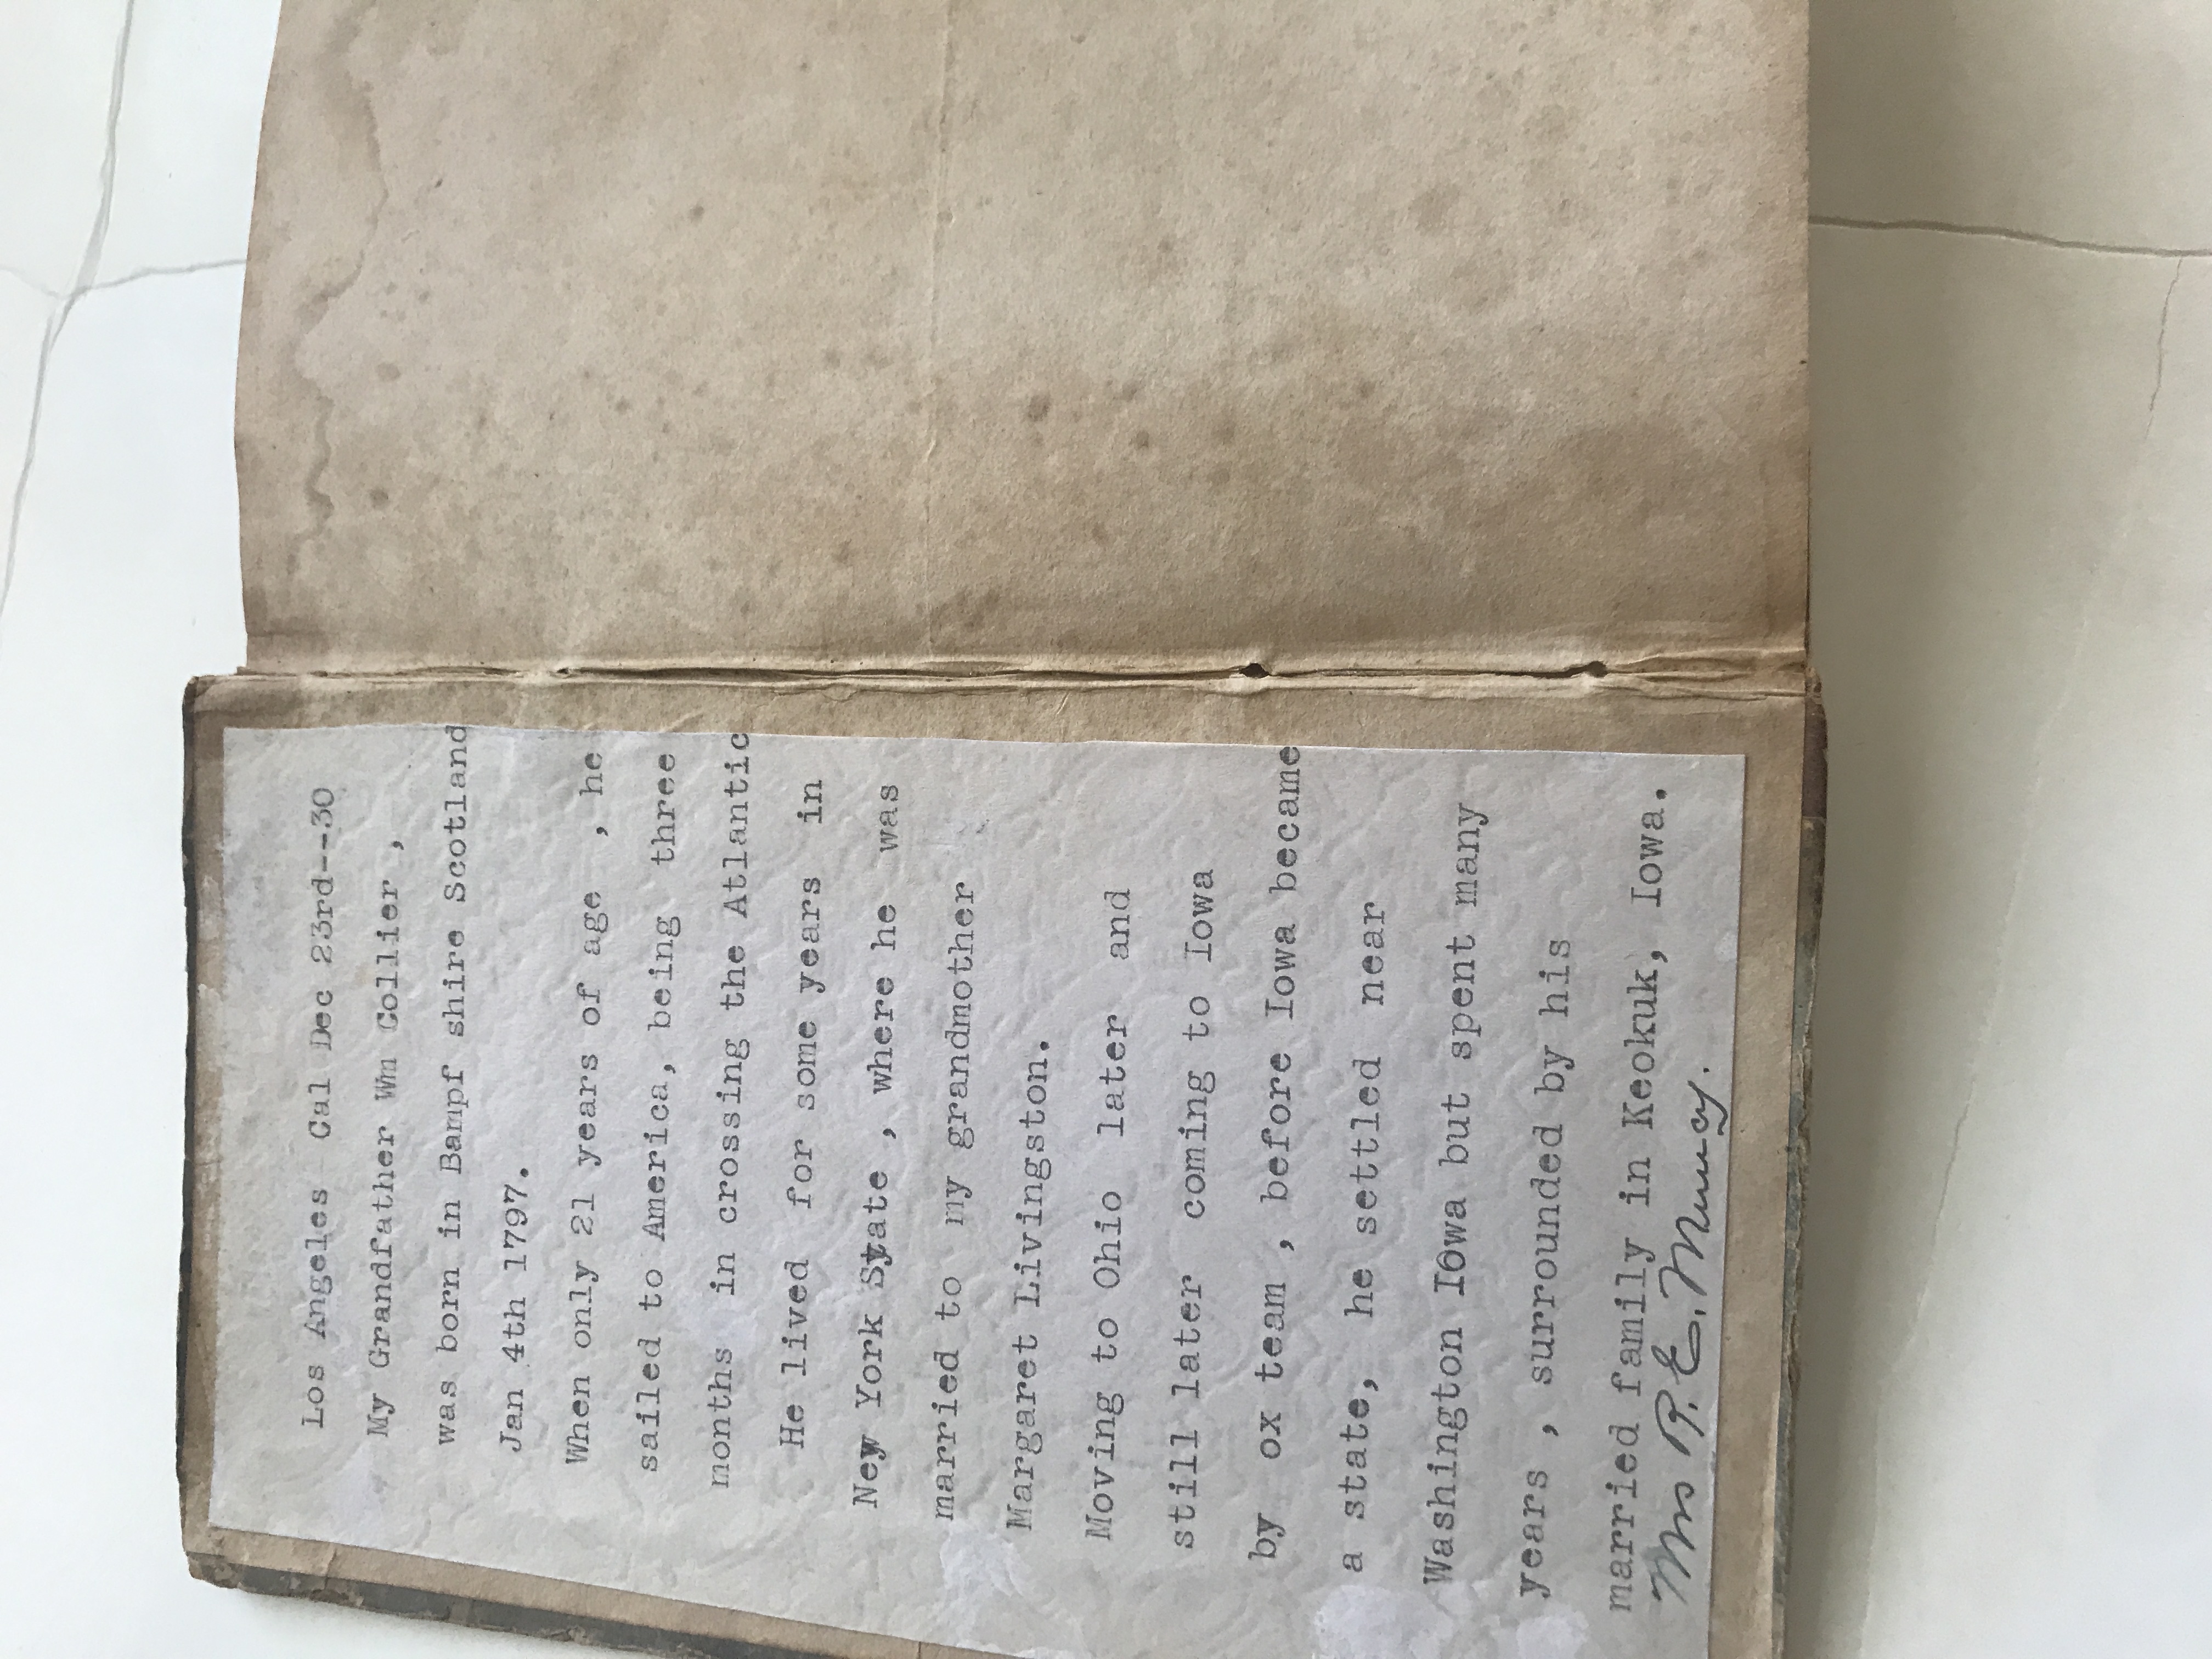 Los Angeles Cal Dec 23rd--30
My Grandfather Wm Collier ,
was born in Bampf shire Scotland
Jan 4th 1797.
When only 21 years of age , he
sailed to America, being three
months in crossing the Atlantic
He lived for some years in
New York State , where he was
married to my grandmother
Margaret Livingston.
Moving to Ohio later and
still later coming to Iowa
by ox team , before Iowa became
a state, he settled near
Washington Iowa but spent many
years , surrounded by his
married family in Keokuk, Iowa.
Mrs R. E. Murray.